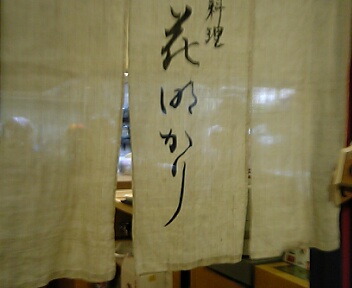 料理
花明かり